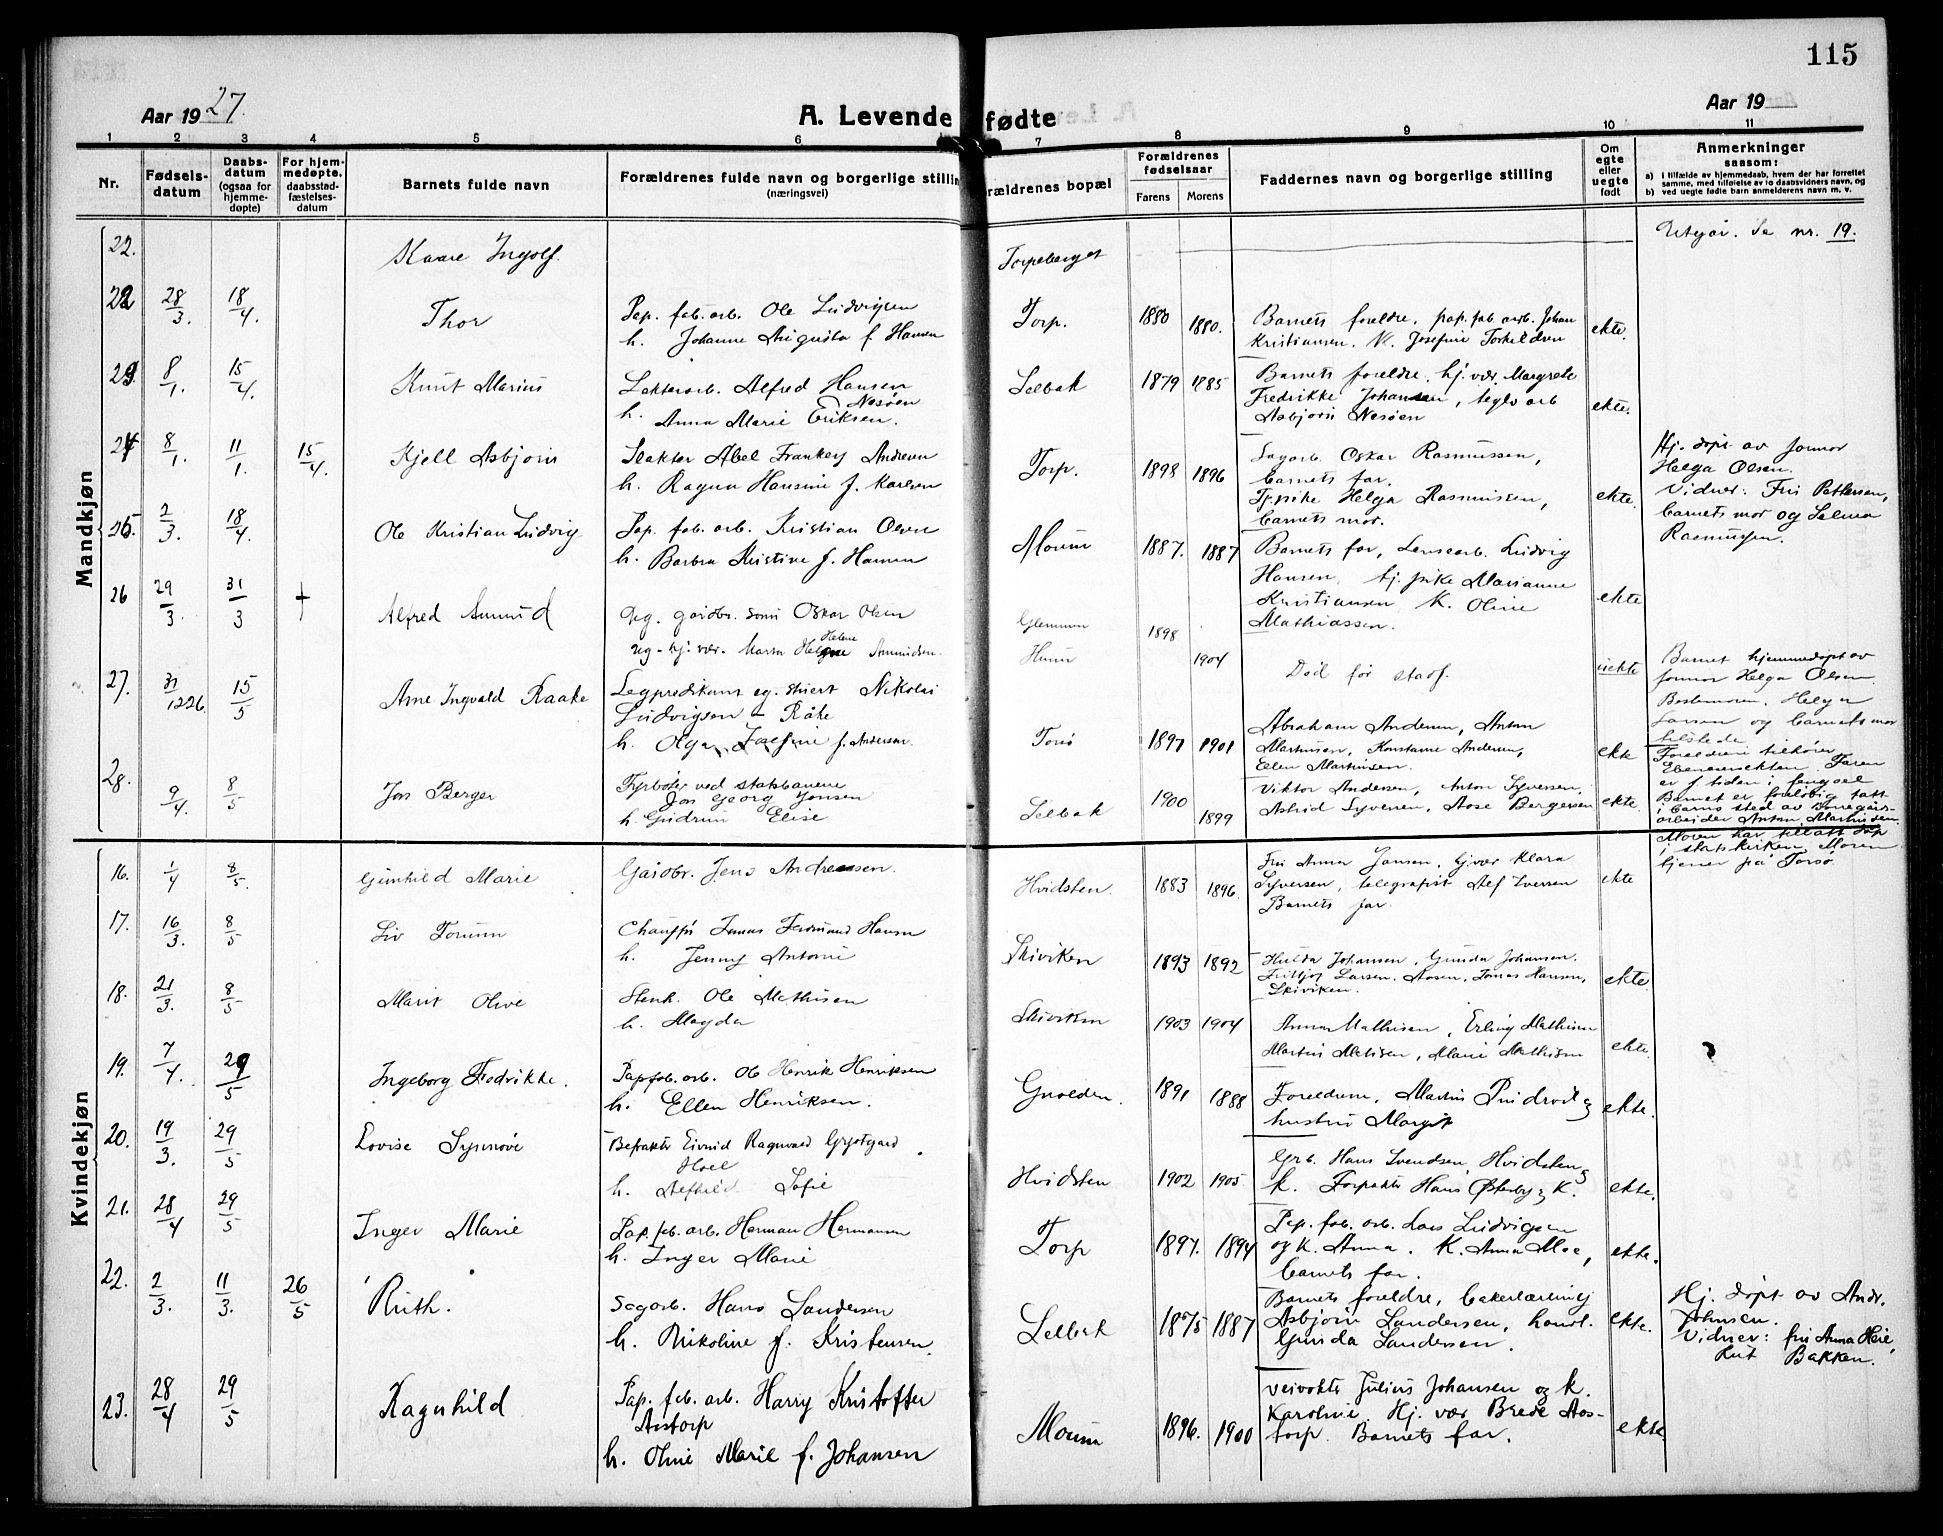 115
Aar 1927.
A. Levende fødte
Aar 19
1 2 3 4 5 6 7 8 9 10 11
Nr.
Fødsels-
datum
Daabs-
datum
(ogsaa for
hjemme-
døpte)
For hjem-
medøpte.
daabsstad-
fæstelses-
datum
Barnets fulde navn
Forældrenes fulde navn og borgerlige stillin
(næringsvei)
rældrenes bopæl
Forældrenes
fødselsaar
Farens Morens
Faddernes navn og borgerlige stilling
Om
egte
eller
uegte
født
Anmerkninger
saasom:
a) i tilfælde av hjemmedaab, hvem der har forrettet
samme, med tilføielse av to daabsvidners navn, og
b) ved uegte fødte barn anmelderens navn m. v.
Mandkjøn
22. Kaare Ingolf. Torpeberget Utgår. Se nr. 19.
22 28/3. 18/4. Thor
Pap. fab. arb. Ole Ludvigsen
h. Johanne Augusta f. Hansen
Torp. 1880 1880.
Barnets foreldre, pap. fab. arb. Johan
Kristiansen. K. Josefine Torkildsen
ekte.
23. 8/1. 15/4. Knut Marius
Lakterarb. Alfred Hansen
Nesøen
h. Anna Marie Eriksen.
Selbak 1879 1885
Barnets foreldre, hj. vær. Margrete
Fredrikke Johansen, teglv. arb
Asbjørn Nesøen
ekte.
24 8/1. 11/1. 15/4. Kjell Asbjørn
Slakter Abel Frankery Andresen
h. Ragna Hansine f. Karlsen
Torp. 1898 1896
Sagarb. Oskar Rasmussen,
barnets far.
Tj. pike Helga Rasmussen,
barnets mor.
ekte.
Hj. døpt av jormor
Helga Olsen.
Vidner: Fru Pettersen,
barnets mor og Selma
Rasmussen.
25. 2/3. 18/4. Ole Kristian Ludvig
Pap. fab. arb. Kristian Olsen
h. Barbra Kristine f. Hansen
Moum 1887. 1887
Barnets far, Lensearb. Ludvig
Hansen, tj. pike Marianne
Kristiansen, K. Oline
Mathiassen.
ekte
26 29/3. 31/3 + Alfred Amund
Ug. gardbr. sønn Oskar Olsen
Helene
Ug. hj. vær. Marta Amundsen.
Glemmen
Hunn
1898 1904
Død før stadf.
uekte
27. 31/1226. 15/5 Arne Ingvald Raake
Legpredikant og skuest. Nikolai
Ludvigsen Råke
h. Olga Josefine f. Andersen.
Torsø 1897 1901
Abraham Andersen, Anton
Martinsen, Konstanse Andersen,
Ellen Martinsen.
ekte
Barnet hjemmedøpt av
jormor Helga Olsen.
Bestemoren, Helga
Larsen og barnets mor
tilstede
Foreldrene tilhører
Ebenesersekten. Faren
er f. tiden i fengsel
Barnet er foreløbig tatt
i barns sted av
arbeider Anton Martinsen
Moren har tillatt dåp
i statskirken. Moren
tjener på Torsø.
28. 9/4. 8/5 Jon Berger
Fyrbøter ved statsbanene
Jon Georg Jonsen
h. Gudrun Elise
Selbak 1900 1899
Viktor Andersen, Anton Syversen,
Astrid Syversen, Aase Bergersen
ekte.
Kvindekjøn
16. 1/4 8/5. Gunhild Marie
Gardbr. Jens Andreassen.
Hvidsten. 1883 1896.
Fru Anna Jansen, hj. vær Klara
Syversen, telegrafist Alf Iversen
Barnets far.
ekte
17. 16/3. 8/5 Liv Torunn
Chauffør Jonas Ferdinand Hansen
h. Jenny Antonie
Skiviken 1893 1892
Hulda Johansen, Gunda Johansen.
Fritjof Larsen. Aasen, Jonas Hansen,
Skiviken.
ekte.
18. 21/3. 8/5 Marit Olive
Stenh. Ole Mathisen
h. Magda
Skiviken 1903 1904
Anna Mathisen, Erling Mathisen
Martin Matisen, Marie Mathisen
ekte.
19. 7/4. 29/5 Ingeborg Fredrikke.
Papfab. arb. Ole Henrik Henriksen
h. Ellen Henriksen.
Gnolden. 1891 1888
Foreldrene, Martin og
hustru Margit
ekte.
20. 19/3. 29/5 Lovise Synnøve
Befrakter Eivind Ragnvald Grjotgard
Hoel
h. Alfhild Sofie
Hvidsten 1902 1905
Grb. Hans Svendsen, Hvidsten og
K. Forpakter Hans Østerby og K.
ekte.
21. 28/4 29/5 Inger Marie
Pap. fab. arb. Herman Hermansen
h. Inger Marie
Torp 1897. 1894
Pap. fab. arb. Lars Ludvigsen
og K. Anna. K. Anna Moe,
barnets far.
ekte.
22. 2/3. 11/3. 26/5 Ruth.
Sagarb. Hans Sandersen
h. Nikoline f. Kristensen.
Selbak 1875 1887
Barnets foreldre, bakerlærling
Asbjørn Sandersen, handl.
Gunda Sandersen.
ekte.
Hj. døpt av Andr.
Johnsen.
Vidner: fru Anna Heie,
Rut Bakken.
23. 28/4 29/5 Ragnhild
Pap. fab. arb. Harry Kristoffer
Aastorp
h. Oline Marie f. Johansen
Moum 1896. 1900
Veivokter Julius Johansen og K.
Karoline. Hj. vær Brede Aas-
torp. Barnets far.
ekte.